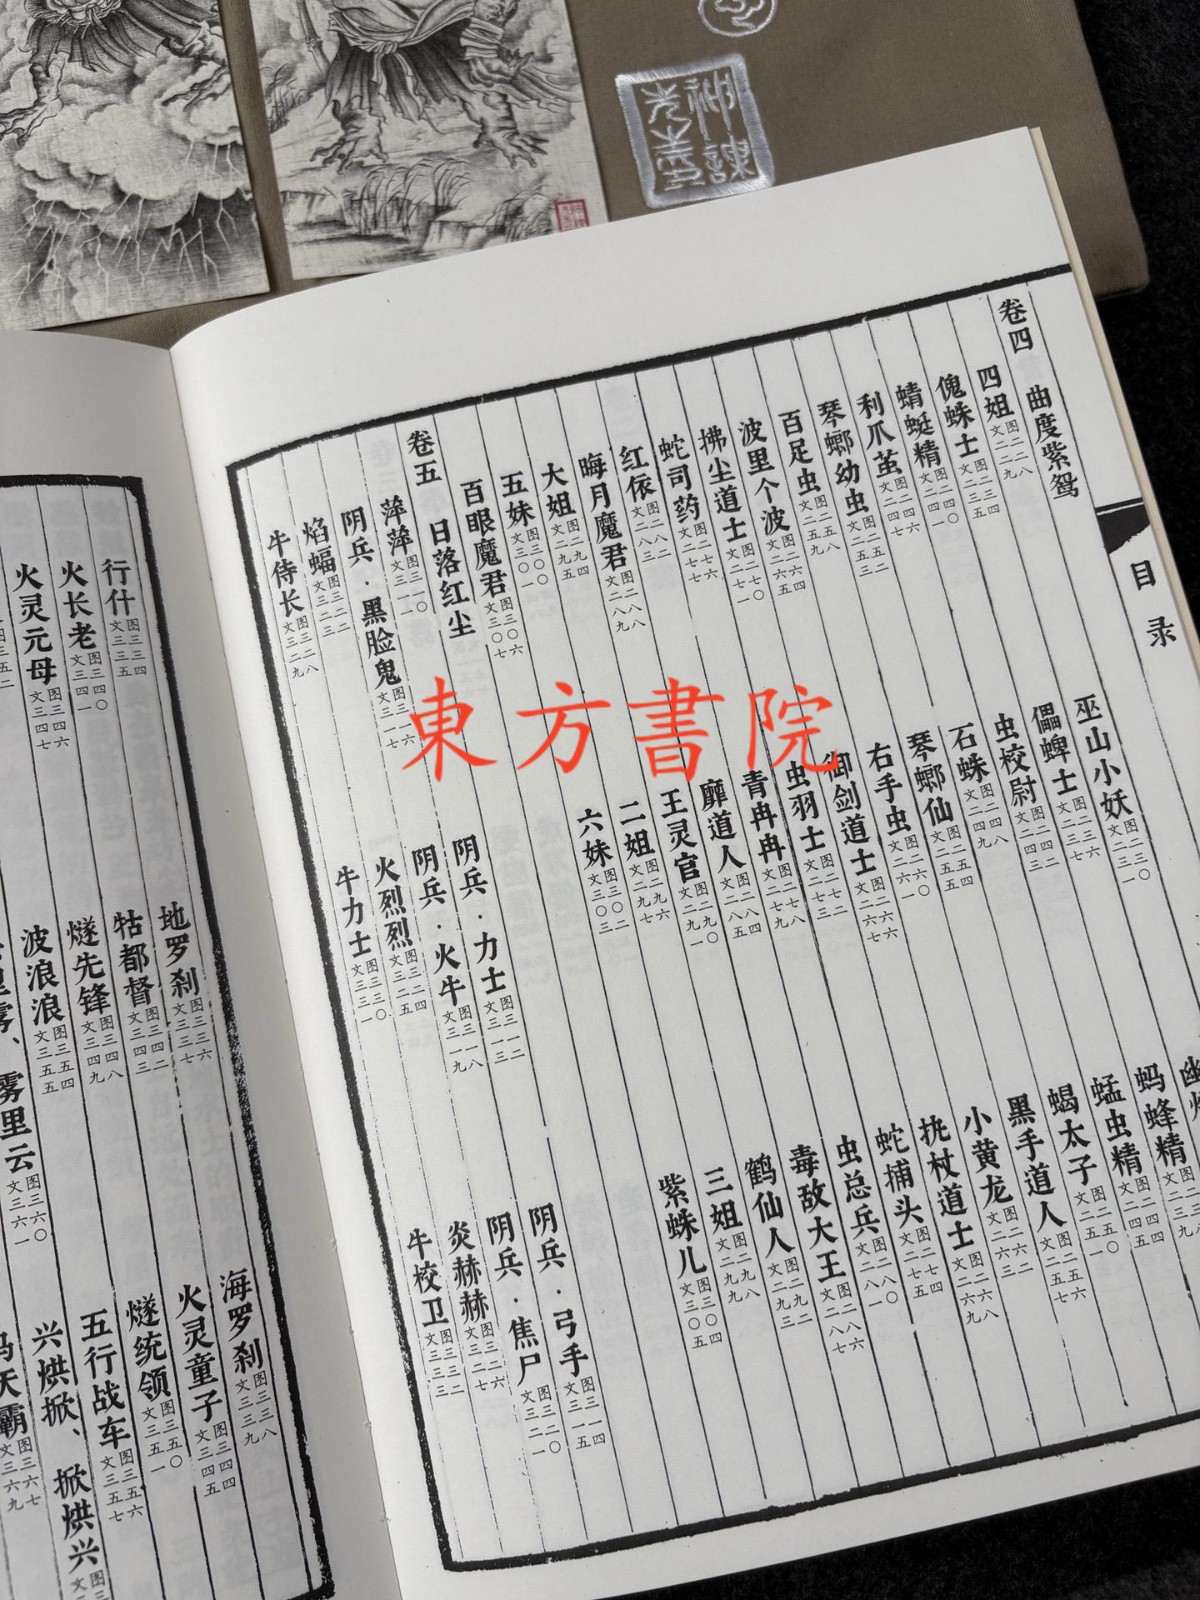 目录
卷四 曲度紫鸳
四姐 图二二八 文二二九 巫山小妖 图二三〇 文二三一
傀蛛士 图二三四 文二三五 儡蜱士 图二三六 文二三七 蚂蜂精
蜻蜓精 图二四〇 文二四一 虫校尉 图二四二 文二四三 蜢虫精 图二四四 文二四五
利爪茧 图二四六 文二四七 石蛛 图二四八 文二四九 蝎太子 图二五〇 文二五一
琴螂幼虫 图二五二 文二五三 琴螂仙 图二五四 文二五五 黑手道人 图二五六 文二五七
百足虫 图二五八 文二五九 右手虫 图二六〇 文二六一 小黄龙 图二六二 文二六三
波里个波 图二六四 文二六五 御剑道士 图二六六 文二六七 杖道士 图二六八 文二六九
拂尘道士 图二七〇 文二七一 虫羽士 图二七二 文二七三 蛇捕头 图二七四 文二七五
蛇司药 图二七六 文二七七 青冉冉 图二七八 文二七九 虫总兵 图二八〇 文二八一
红依 图二八二 文二八三 靡道人 图二八四 文二八五 毒敌大王 图二八六 文二八七
晦月魔君 图二八八 文二八九 王灵官 图二九〇 文二九一 鹤仙人 图二九二 文二九三
大姐 图二九四 文二九五 二姐 图二九六 文二九七 三姐 图二九八 文二九九
五妹 图三〇〇 文三〇一 六妹 图三〇二 文三〇三 紫蛛儿 图三〇四 文三〇五
百眼魔君 图三〇六 文三〇七
卷五 日落红尘
萍萍 图三一〇 文三一一 阴兵·力士 图三一二 文三一三 阴兵·弓手 图三一四 文三一五
阴兵·黑脸鬼 图三一六 文三一七 阴兵·火牛 图三一八 文三一九 阴兵·焦尸 图三二〇 文三二一
焰蝠 图三二二 文三二三 火烈烈 图三二四 文三二五 炎赫赫 图三二六 文三二七
牛侍长 图三二八 文三二九 牛力士 图三三〇 文三三一 牛校卫 图三三二 文三三三
行什 图三三四 文三三五 地罗刹 图三三六 文三三七 海罗刹 图三三八 文三三九
火长老 图三四〇 文三四一 牯都督 图三四二 文三四三 火灵童子 图三四四 文三四五
火灵元母 图三四六 文三四七 燧先锋 图三四八 文三四九 燧统领 图三五〇 文三五一
波浪浪 图三五四 文三五五 五行战车 图三五六 文三五七
里雾、雾里云 图三六〇 文三六一 兴烘掀、掀烘兴
天霸
東方書院